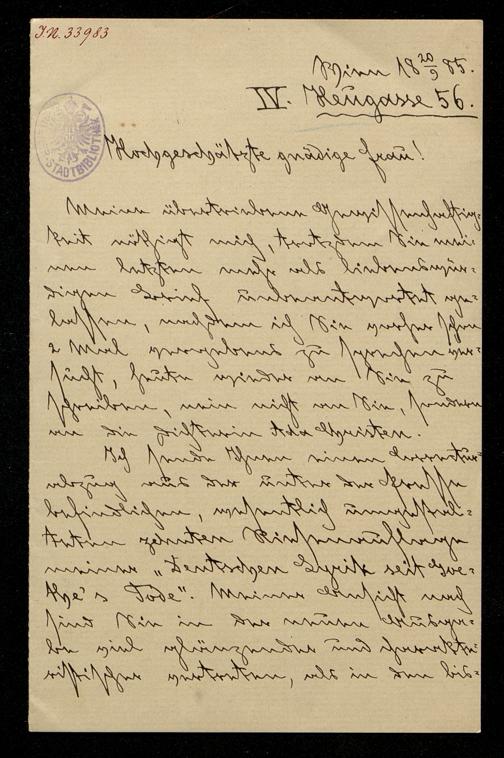 I.N. 33983
STADTBIBLIOTHEK
Wien 18 20/9 85.
IV. Heugasse 56.
Hochgeschätzte gnädige Frau!
Meine übertriebene Gewissenhaftig-
keit nöthigt mich, trotzdem Sie mei-
nen letzten mehr als liebenswür-
digen Brief unbeantwortet ge-
lassen, nachdem ich Sie vorher schon
2 Mal vergebens zu sprechen ver-
sucht, heute wieder an Sie zu
schreiben, nein nicht an Sie, sondern
an die Dichterin Ada Christen.
Ich sende Ihnen einen Correctur-
abzug aus der unter der Presse
befindlichen, wesentlich umgestal-
teten zehnten Riesenauflage
meiner „Deutschen Lyrik seit Goe-
the's Tode". Meiner Ansicht nach
sind Sie in der neuen Ausga-
be viel glänzender und charakte-
ristischer vertreten, als in den bis-